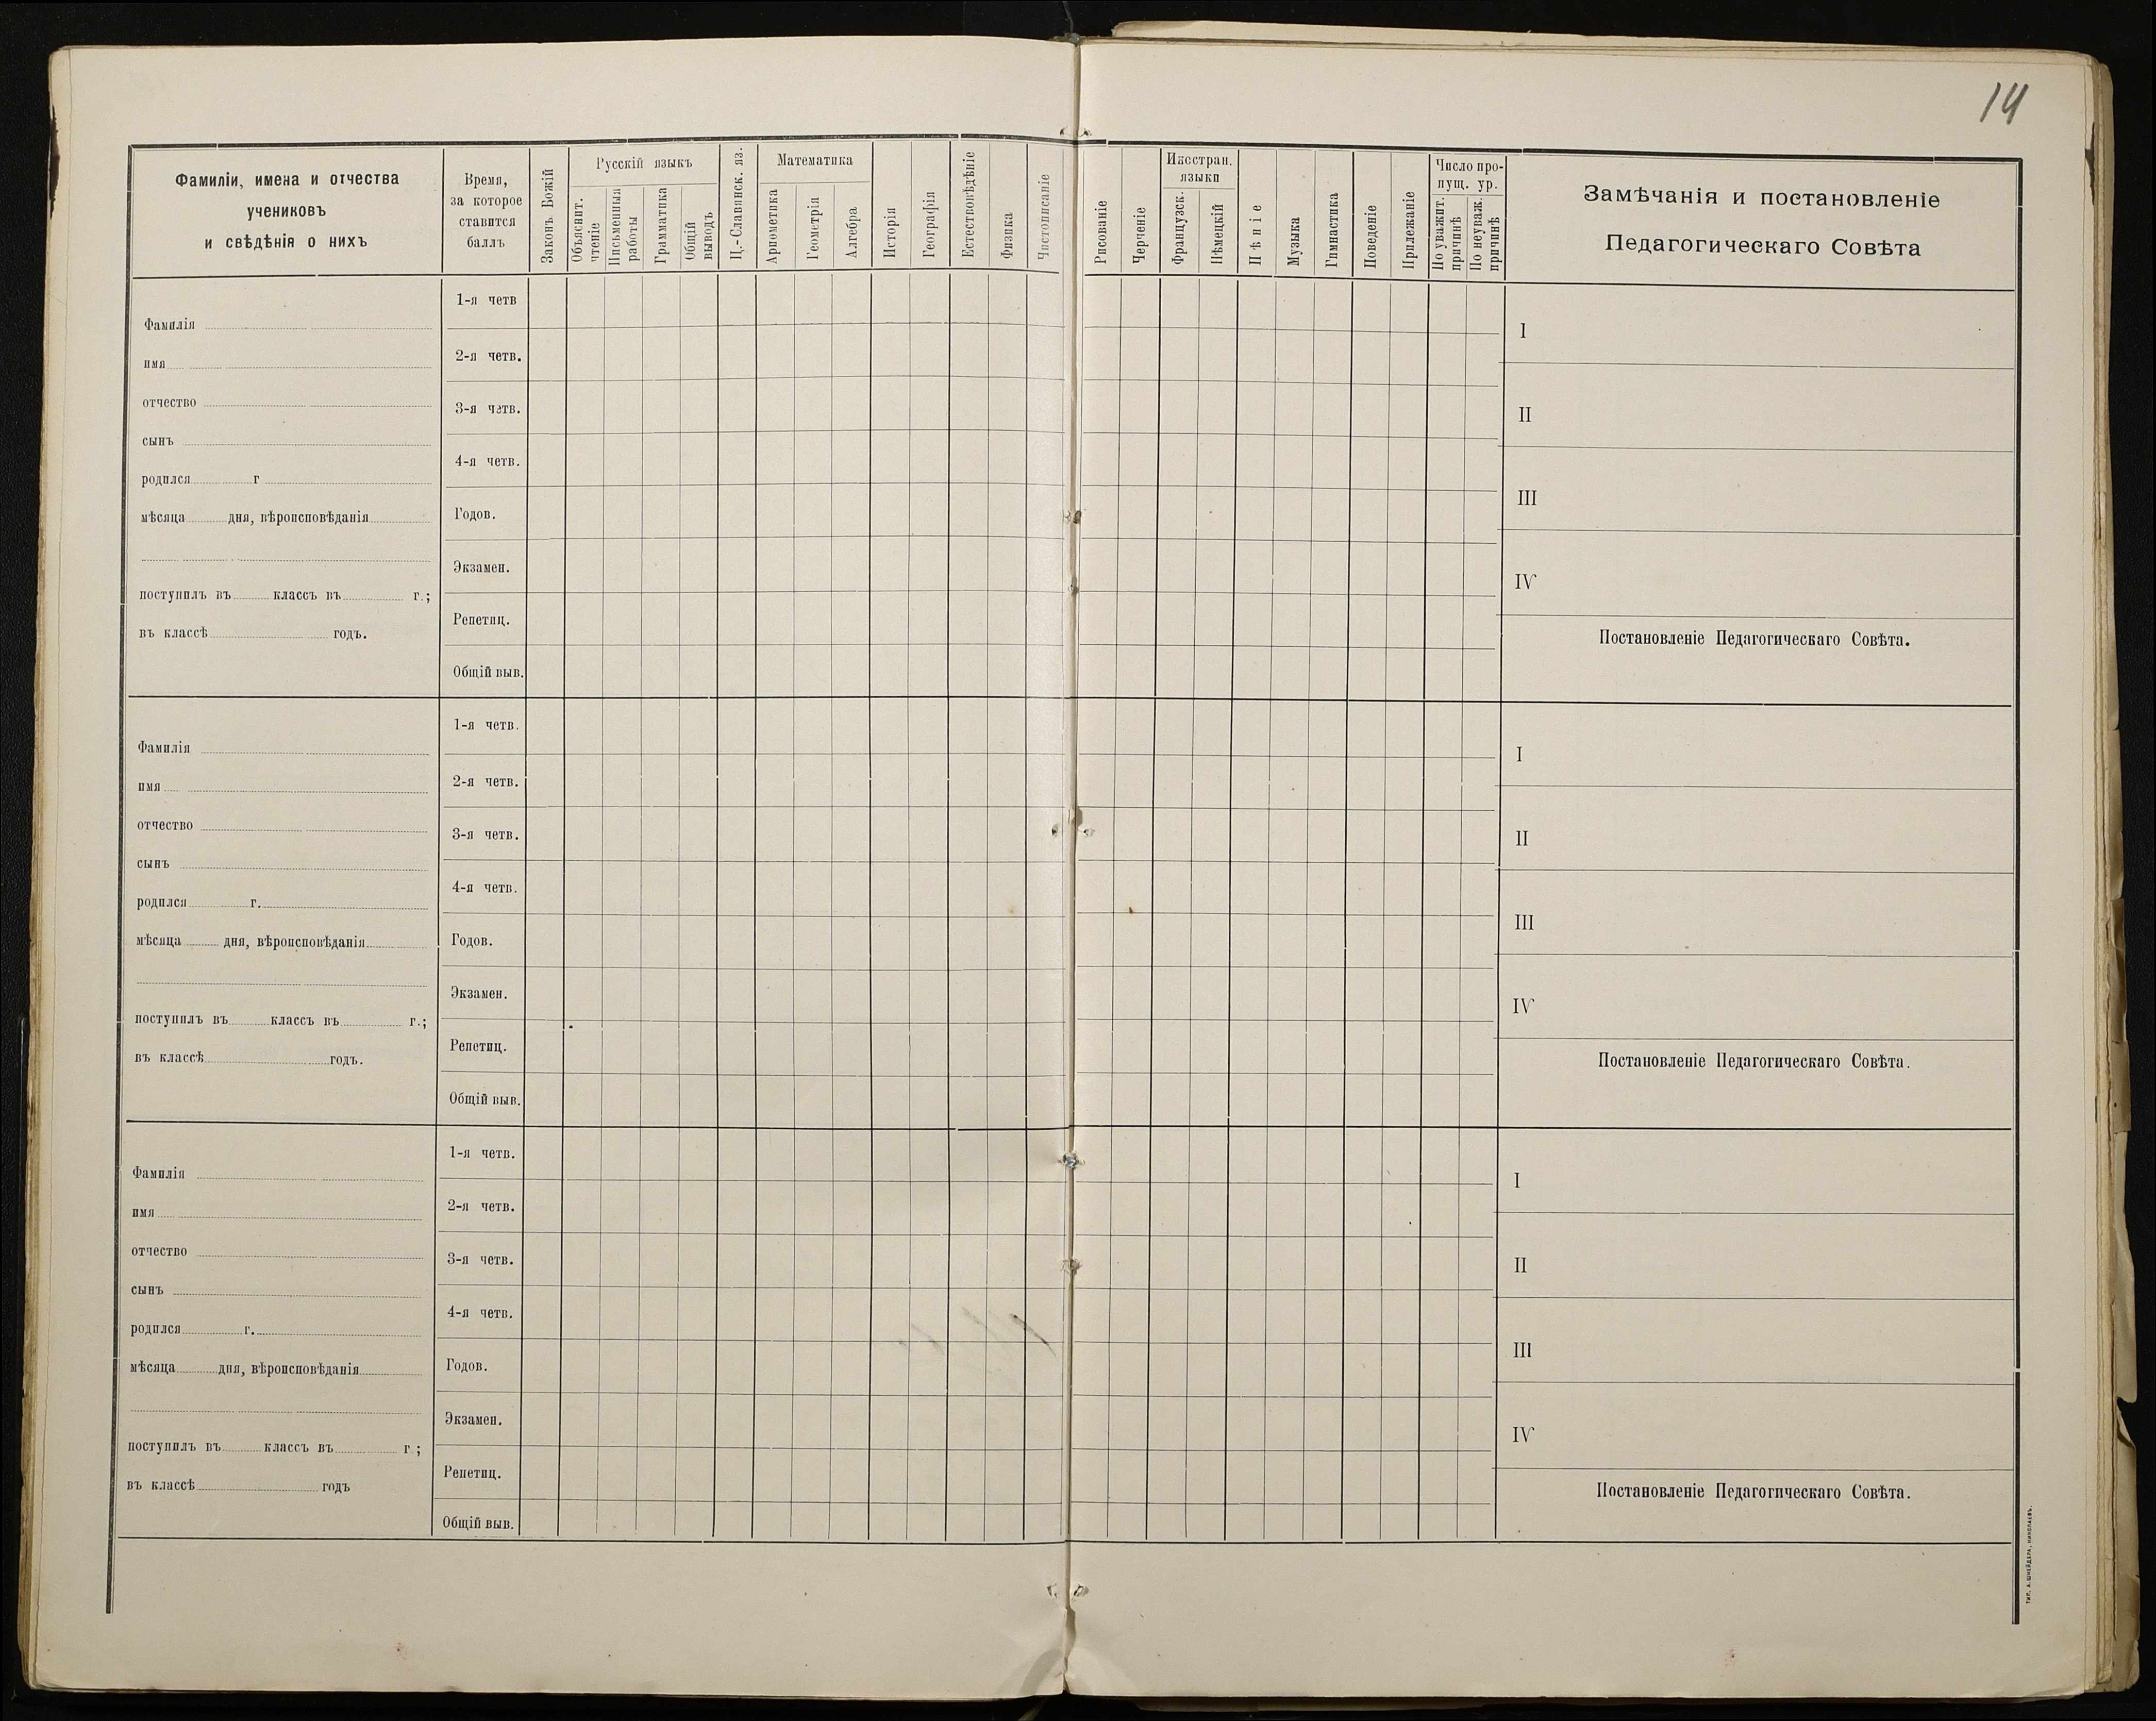 14
Фамиліи, имена и отчества
учениковъ
и свѣдѣнія о нихъ
Время,
за которое
ставится
баллъ
Законъ Божій
Русскій языкъ
Объяснит.
чтеніе
Письменныя
работы
Грамматика
Общій
выводъ
Ц.-Славянск. яз.
Математика
Ариѳметика
Геометрія
Алгебра
Исторія
Географія
Естествовѣдѣніе
Физика
Чистописаніе
Рисованіе
Черченіе
Иностран.
языки
Французск.
Нѣмецкій
Пѣніе
Музыка
Гимнастика
Поведеніе
Прилежаніе
Число про-
пущ. ур.
По уважит.
причинѣ
По неуваж.
причинѣ
Замѣчанія и постановленіе
Педагогическаго Совѣта
Фамилія
имя
отчество
сынъ
родился г
мѣсяца дня, вѣроисповѣданія
поступилъ въ классъ въ г.;
въ классѣ годъ.
1-я четв
2-я четв.
3-я четв.
4-я четв.
Годов.
Экзамен.
Репетиц.
Общій выв.
I
II
III
IV
Постановленіе Педагогическаго Совѣта.
Фамилія
имя
отчество
сынъ
родился г.
мѣсяца дня, вѣроисповѣданія
поступилъ въ классъ въ г.;
въ классѣ годъ.
1-я четв.
2-я четв.
3-я четв.
4-я четв.
Годов.
Экзамен.
Репетиц.
Общій выв.
I
II
III
IV
Постановленіе Педагогическаго Совѣта.
Фамилія
имя
отчество
сынъ
родился г.
мѣсяца дня, вѣроисповѣданія
поступилъ въ классъ въ г ;
въ классѣ годъ
1-я четв.
2-я четв.
3-я четв.
4-я четв.
Годов.
Экзамен.
Репетиц.
Общій выв.
I
II
III
IV
Постановленіе Педагогическаго Совѣта.
ТИП. А. ШНЕЙДЕРА, НИКОЛАЕВЪ.